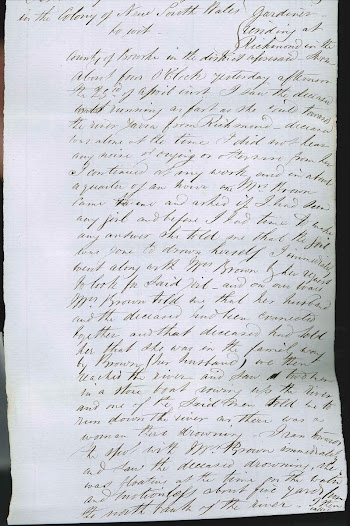 in the Colony of New South Wales Gardiner
to wit residing at
Richmond in the
County of Bourke in the district aforesaid
about four O'Clock yesterday afternoon
the 25th of April inst I saw the deceased
running as fast as she could toward
the river Yarra from Richmond - deceased
was alone at the time I did not hear
any noise of crying or otherwise from her
I continued at my work and in about
a quarter of an hour Mrs Brown
came to me and asked if I had seen
any girl and before I had time to make
any answer she told me that the girl
was gone to drown herself I immediately
went along with Mrs Brown by her request
to look for said girl - and on our way
Mrs Brown told me that her husband
and the deceased had been connected
together and that deceased had told
her that she was in the family way
by Brown (her husband) we then
reached the river and saw two men
in a stone boat down in the river
and one of the said men told us to
run down the river as there was a
woman there drowning. I ran towards
the spot with Mrs Brown immediately
and saw the deceased drowning she
was floating at the time on the water
and motionless about five yards from
the north bank of the river -